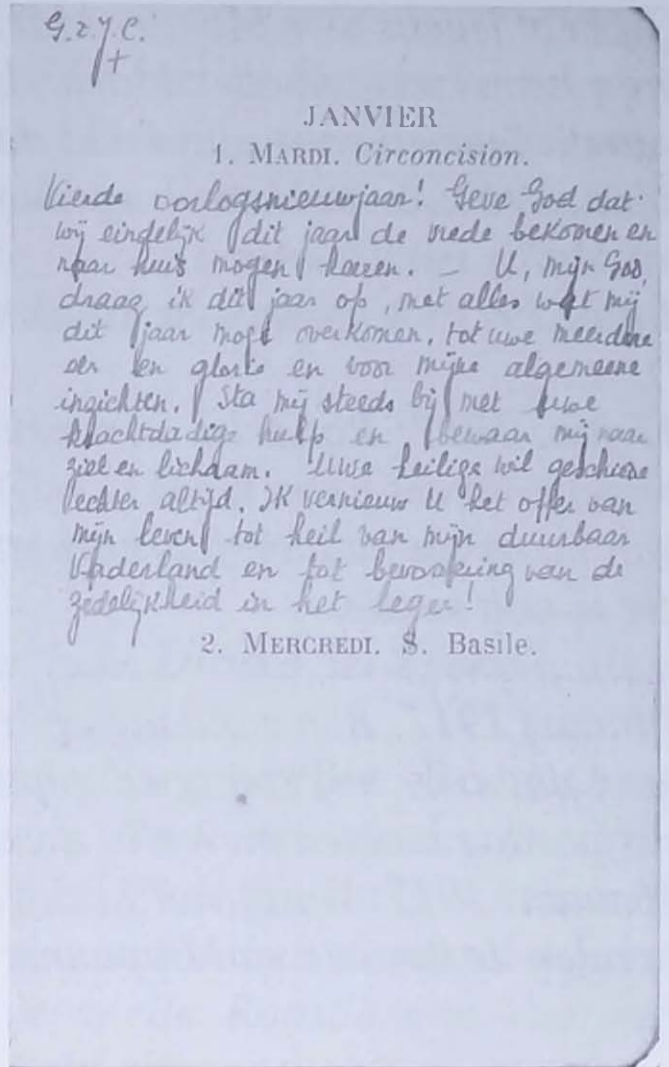 G.z.J.C.
+
JANVIER
1. MARDI. Circoncision.
Vierde oorlogsnieuwjaar! Geve God dat
wij eindelijk dit jaar de vrede bekomen en
naar huis mogen keeren. – U, mijn God,
draag ik dit jaar op, met alles wat mij
dit jaar moge overkomen, tot uwe meerdere
eer en glorie en voor mijne algemeene
inzichten. Sta mij steeds bij met uwe
krachtdadige hulp en bewaar mij naar
ziel en lichaam. Uwe heilige wil geschiede
echter altijd. Ik vernieuw U het offer van
mijn leven tot heil van mijn duurbaar
Vaderland en tot bevordering van de
zedelijkheid in het leger!
2. MERCREDI. S. Basile.